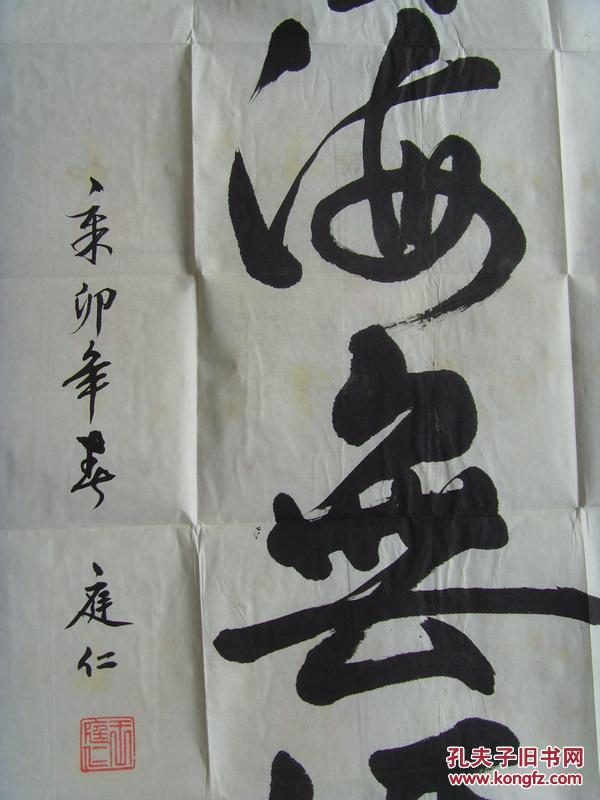 海無
辛卯年春 庭仁
孔夫子旧书网
www.kongfz.com